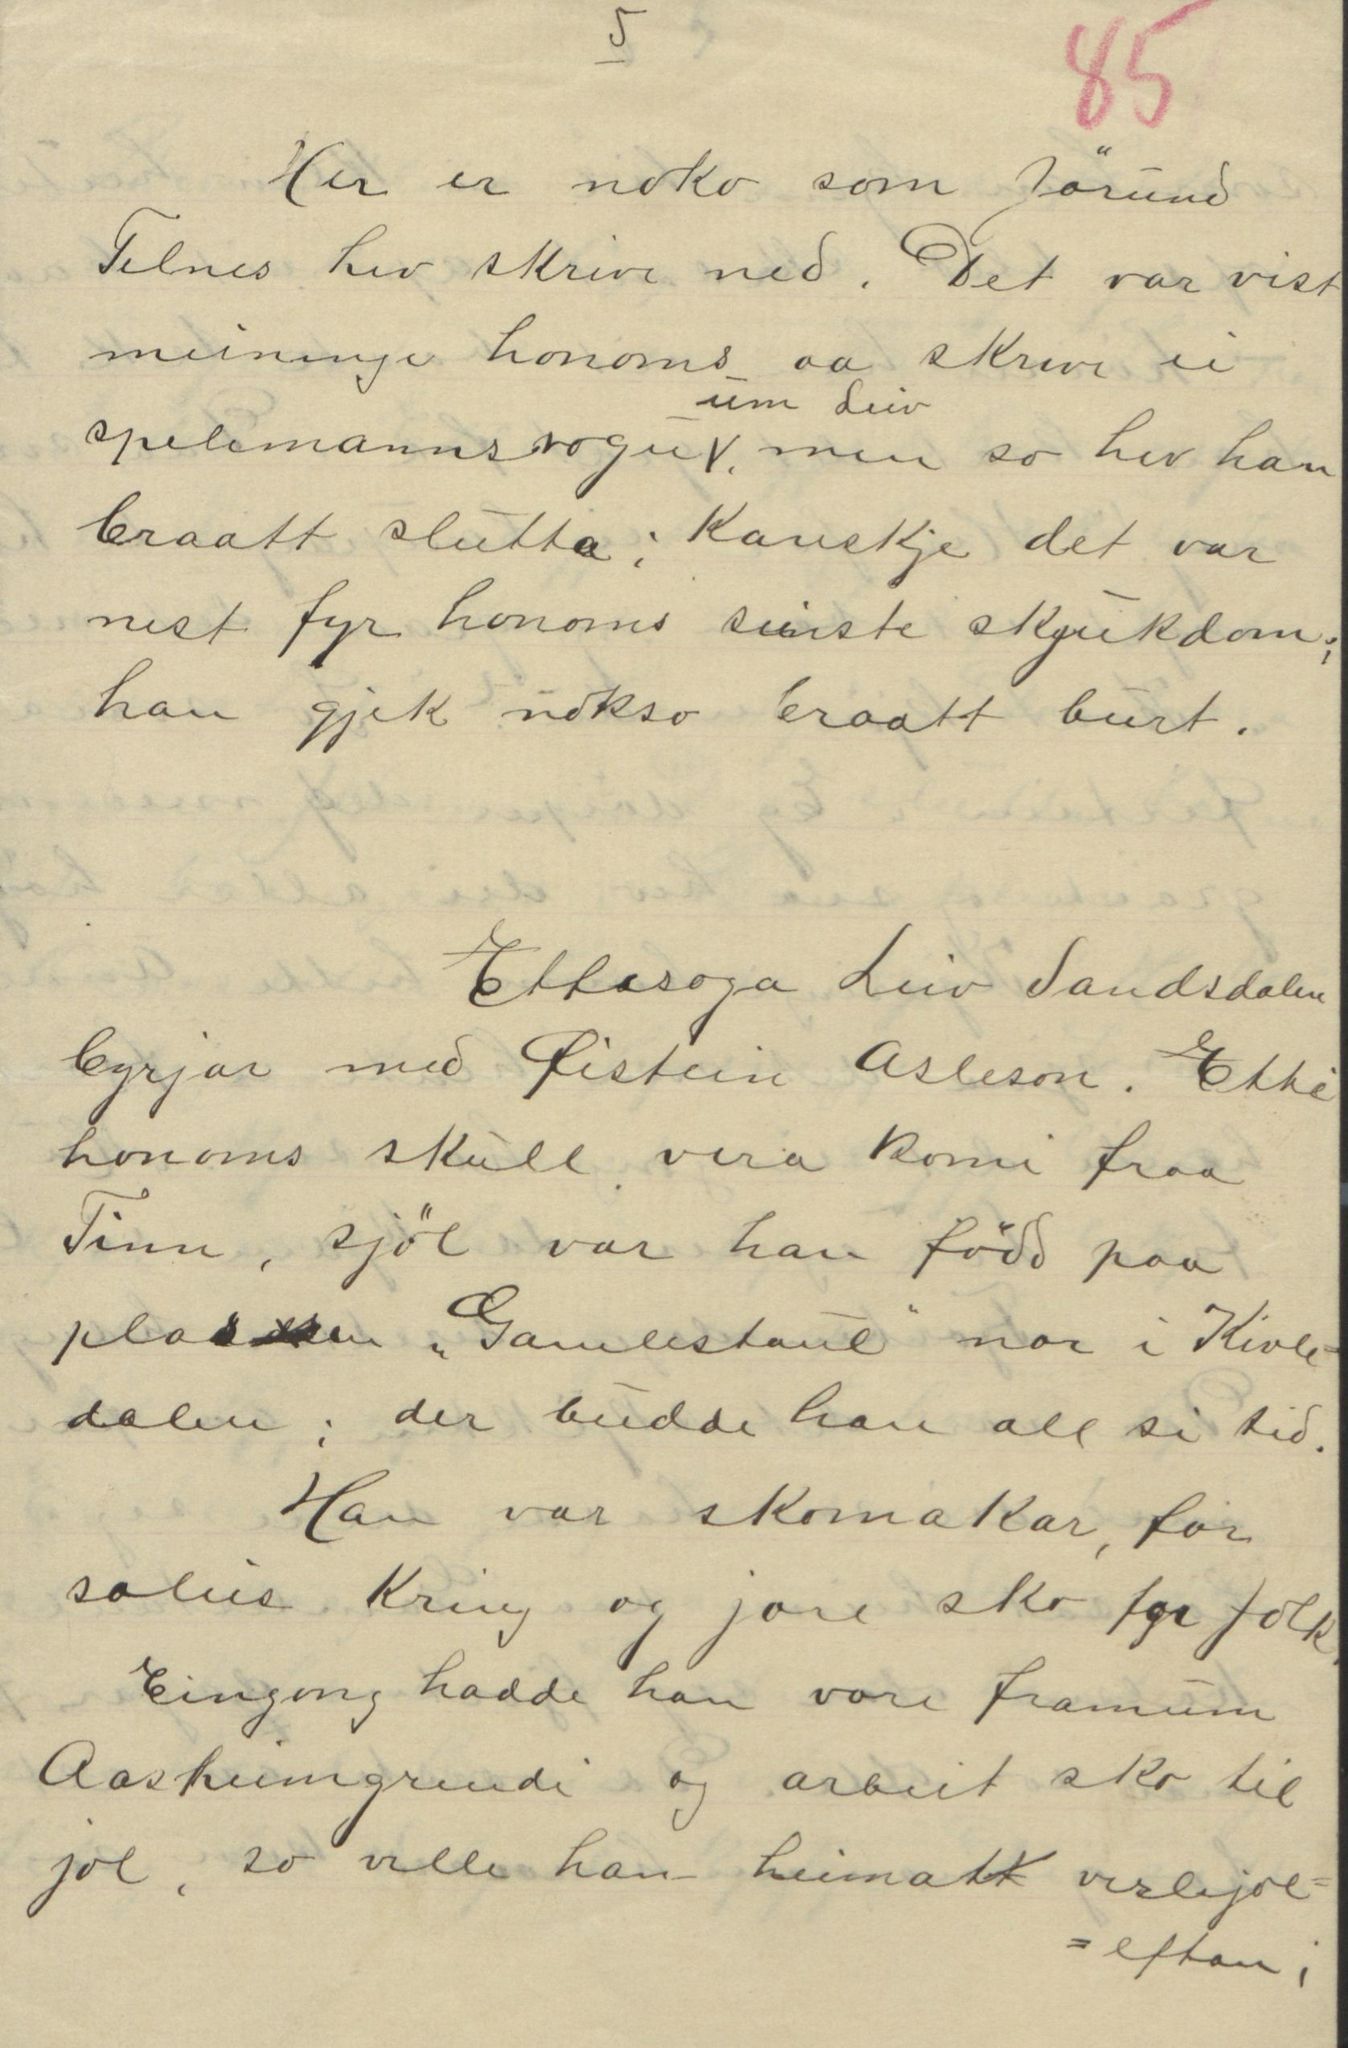 5
85
Her er noko som Jörund
Telnes hev skrive ned. Det var vist
meininge honoms aa skrive ei
um Leiv
spelemannssogu, men so hev han
braatt slutta; kanskje det var
nest fyr honoms siiste skjukdom;
han gjek nokso braatt burt.
Ettesoga Leiv Sandsdalen
byrjar med Øistein Asleson. Ette
honoms skull vera komi fraa
Tinn, sjöl var han född paa
plassen „Gamlestaul" nor i Kivle-
dalen; der budde han all si tid.
Han var skomakar, for
soleis kring og jore sko fyr folk,
Eingong hadde han vore framum
Aasheimgrendi og arbeit sko til
jol, so ville han heimatt verlejol=
=eftan;